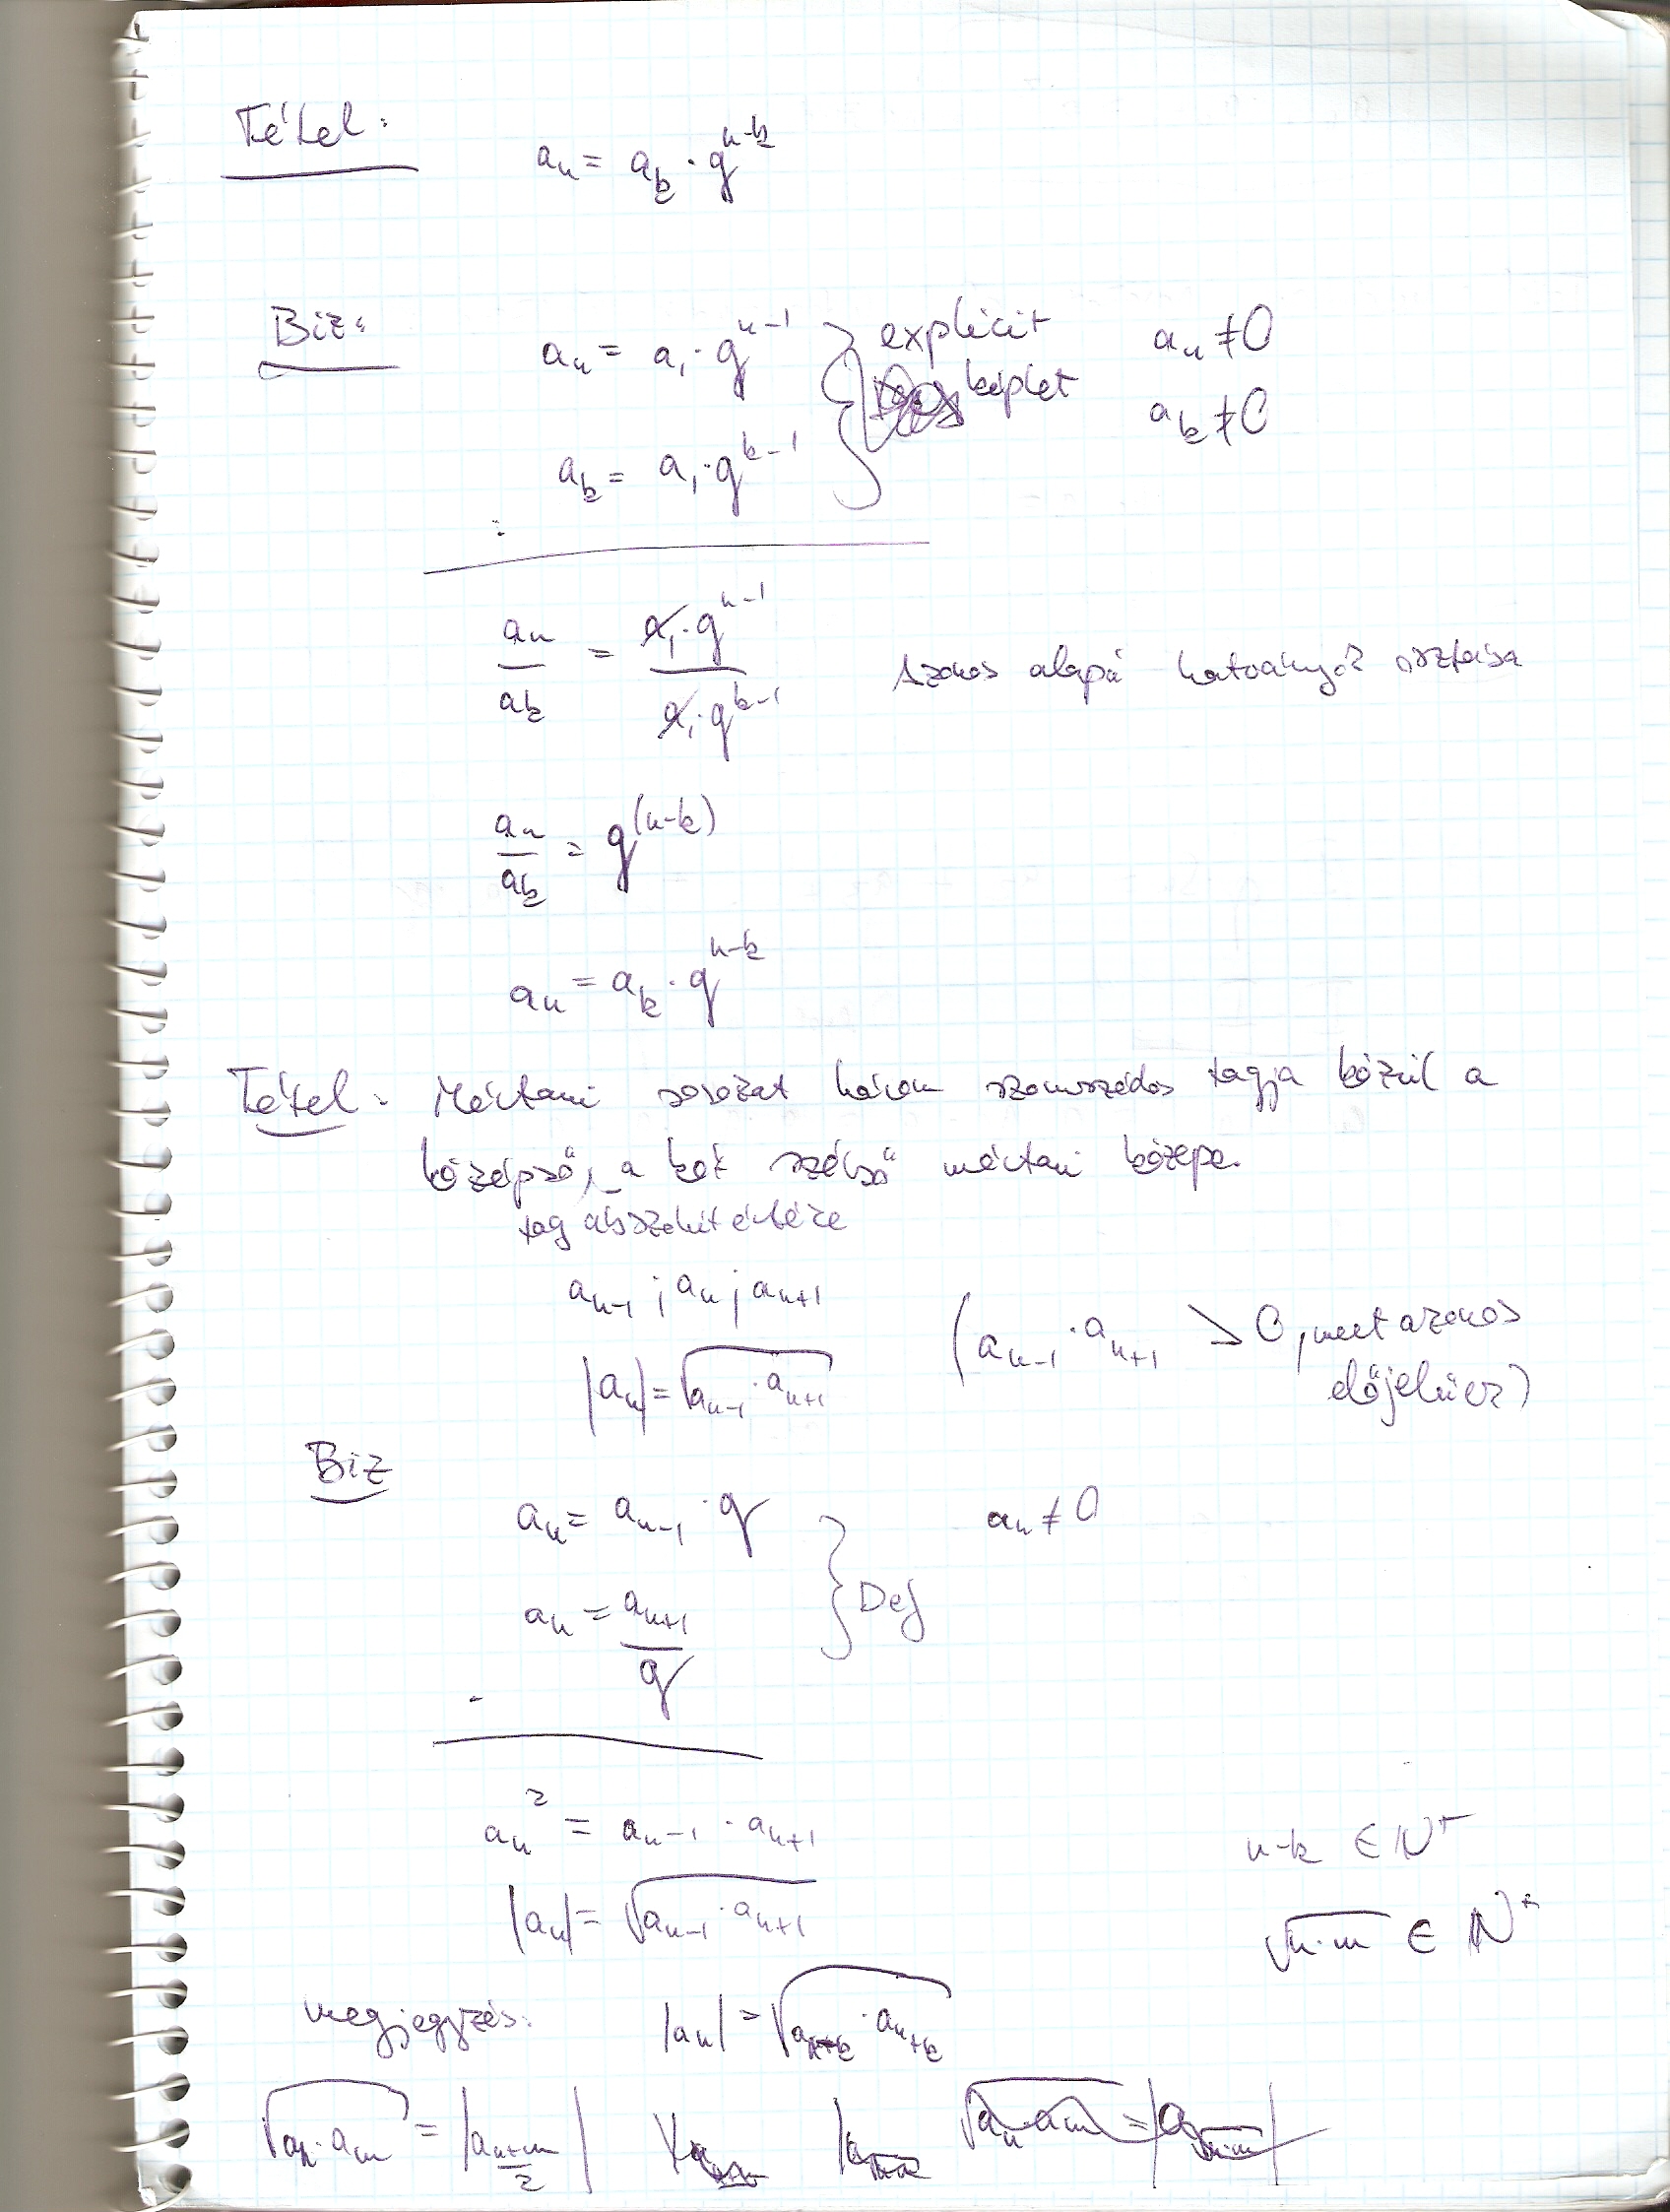 Tétel:
aₙ = aₖ · qⁿ⁻ᵏ
Biz:
aₙ = a₁ · qⁿ⁻¹ } explicit aₙ ≠ 0
képlet aₖ ≠ 0
aₖ = a₁ · qᵏ⁻¹
:
aₙ/aₖ = a₁·qⁿ⁻¹ / a₁·qᵏ⁻¹ Azonos alapú hatványok osztása
aₙ/aₖ = q⁽ⁿ⁻ᵏ⁾
aₙ = aₖ · qⁿ⁻ᵏ
Tétel: Mértani sorozat három szomszédos tagja közül a
középső, a két szélső mértani közepe.
tag abszolút értéke
aₙ₋₁ ; aₙ ; aₙ₊₁
(aₙ₋₁ · aₙ₊₁ > 0, mert azonos
|aₙ| = √(aₙ₋₁ · aₙ₊₁) előjelűek)
Biz
aₙ = aₙ₋₁ · q aₙ ≠ 0
} Def
aₙ = aₙ₊₁/q
·
aₙ² = aₙ₋₁ · aₙ₊₁ n-k ∈ N⁺
|aₙ| = √(aₙ₋₁ · aₙ₊₁) √(n·m) ∈ N⁺
megjegyzés: |aₙ| = √(aₙ₋ₖ · aₙ₊ₖ)
√(aₙ · aₘ) = |a₍ₙ₊ₘ₎/₂| √(aₙ · aₘ) = |a√(n·m)|